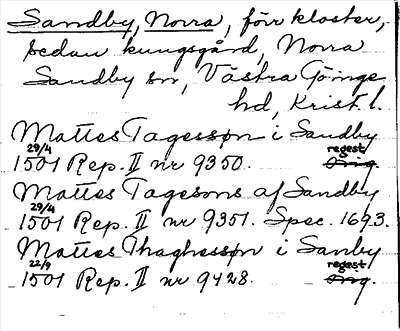 Sandby, Norra, förr kloster,
sedan kungsgård, Norra
Sandby sn, Västra Göinge
hd, Krist. l.
Mattes Tagessøn i Sandby
29/4 1501 Rep. II nr 9350. regest Orig.
Mattes Tagesons af Sandby
29/4 1501 Rep. II nr 9351. Spec. 1693.
Mattes Thaghessøn i Sanby
22/9 1501 Rep. II nr 9428. regest Orig.